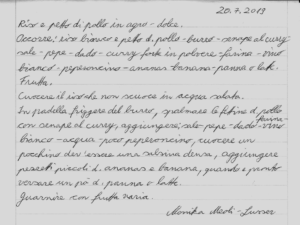 20.7.2019
Riso e petto di pollo in agro-dolce.
Occorre: riso bianco e petto d. pollo - burro - senape al curry
sale - pepe - dado - curry forte in polvere - farina - vino
bianco - peperoncino - ananas banana - panna o latte
Frutta.
Cuocere il riso che non scuoce in acqua salata.
In padella friggere del burro, spalmare le fettine d. pollo
con senape al curry, aggiungere sale - pepe - dado - farina - vino
bianco - acqua - poco peperoncino, cuocere un
pochino dev'essere una salsina densa, aggiungere
pezzetti piccoli d. ananas e banane, quando è pronto
versare un pò d. panna o latte.
Guarnire con frutta varia.
Monika